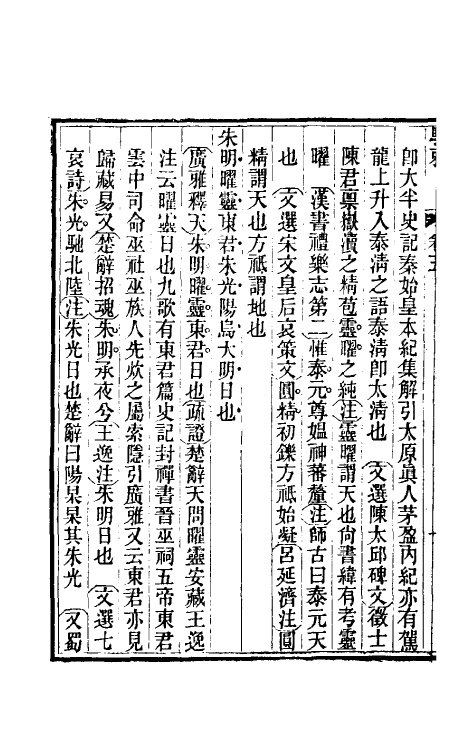 卽大半史記秦始皇本紀集解引太原眞人茅盈內紀亦有駕
龍上升入泰淸之語泰淸卽太淸也 文選陳太邱碑文徵士
陳君稟嶽瀆之精苞靈曜之純注靈曜謂天也尙書緯有考靈
曜 漢書禮樂志第二惟泰元尊媼神蕃釐注師古曰泰元天
也 文選宋文皇后哀策文圓精初鑠方祇始凝呂延濟注圓
精謂天也方祇謂地也
朱明曜靈東君朱光陽烏大明日也
廣雅釋天朱明曜靈東君日也疏證楚辭天問曜靈安藏王逸
注云曜靈日也九歌有東君篇史記封禪書晉巫祠五帝東君
雲中司命巫社巫族人先炊之屬索隱引廣雅又云東君亦見
歸藏易又楚辭招魂朱明承夜兮王逸注朱明日也 文選七
哀詩朱光馳北陸注朱光日也楚辭曰陽杲杲其朱光 又蜀